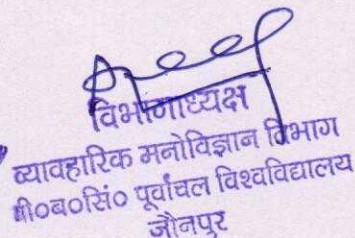 विभागाध्यक्ष
व्यावहारिक मनोविज्ञान विभाग
वी०ब०सिं० पूर्वांचल विश्वविद्यालय
जौनपुर